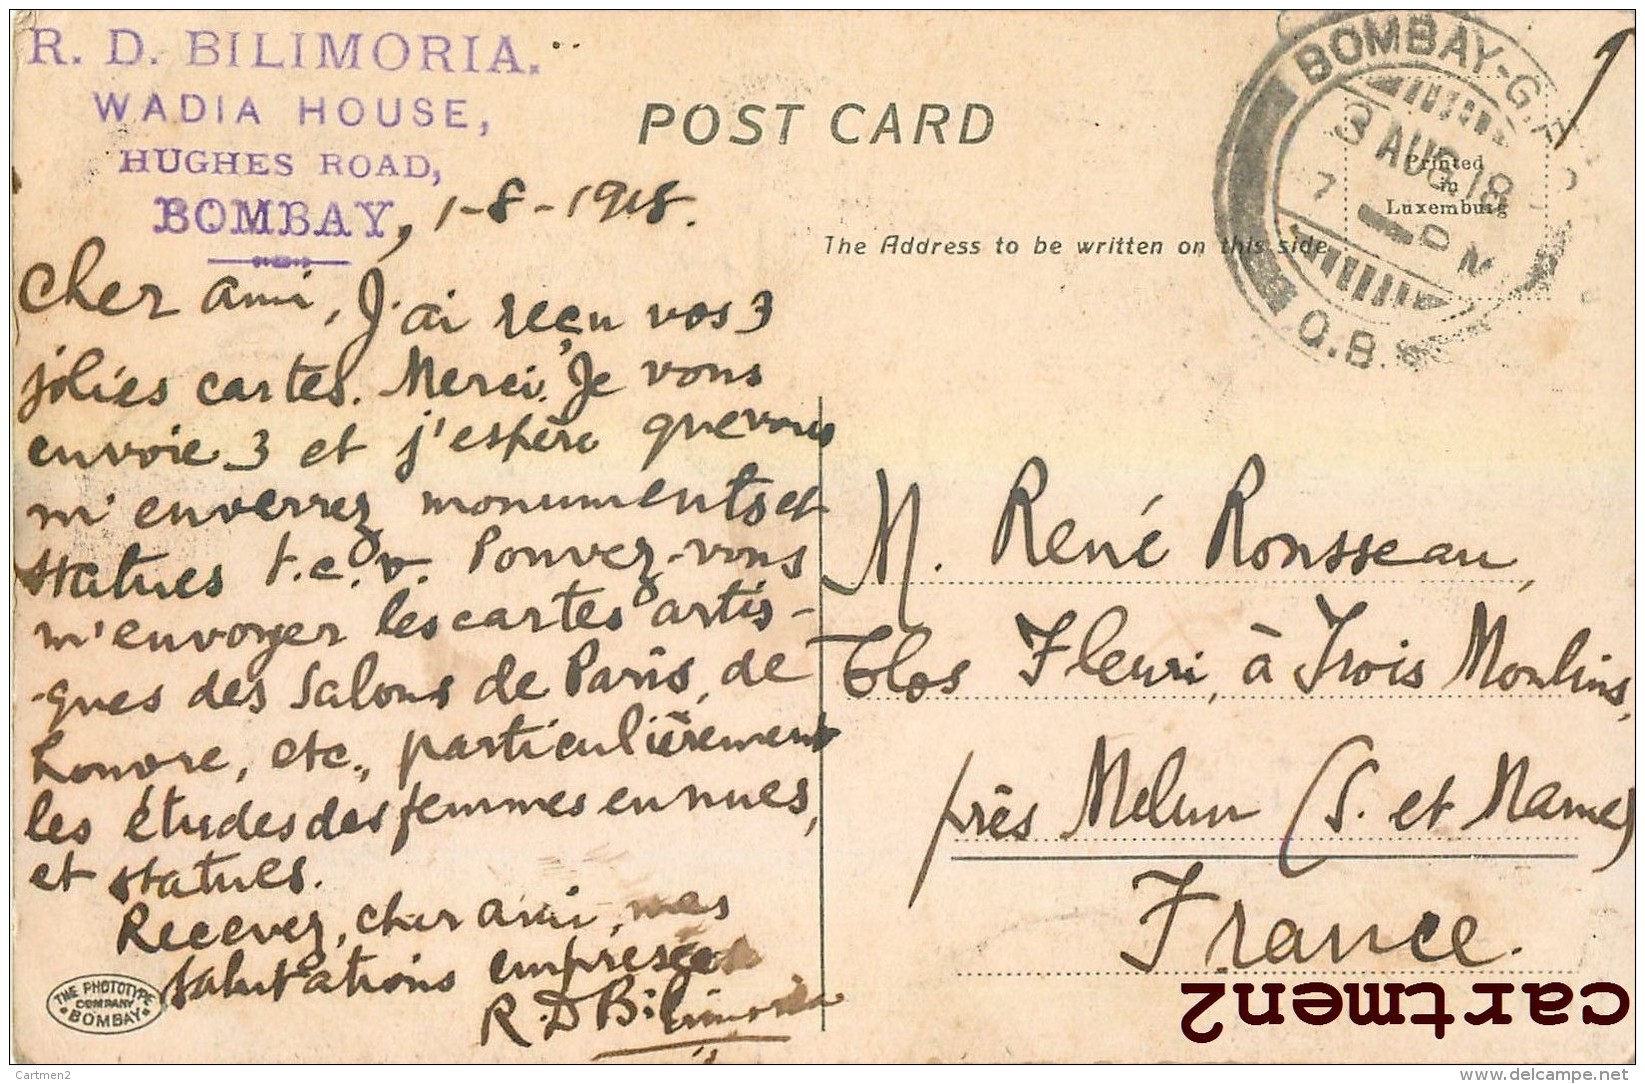 R. D. BILIMORIA.
WADIA HOUSE,
HUGHES ROAD,
BOMBAY, 1-8-1918.
POST CARD
The Address to be written on this side
BOMBAY-G.P.O
3 AUG. 18
7 - P M
Q.B.
Printed
in
Luxemburg
Cher ami, J'ai reçu vos 3
jolies cartes. Merci. Je vous
envoie 3 et j'espère que vous
m'enverrez monuments et
statues t.c.v. Pouvez-vous
m'envoyer les cartes artis-
-ques des Salons de Paris, de
Louvre, etc., particulièrement
les études des femmes en nues,
et statues.
Recevez, cher ami, mes
salutations empresées
R. D Bilimoria
M. René Rousseau,
Clos Fleuri, à Trois Moulins,
près Melun (S. et Marne)
France.
THE PHOTOTYPE
COMPANY
BOMBAY
cartmen2
Cartmen2
www.delcampe.net